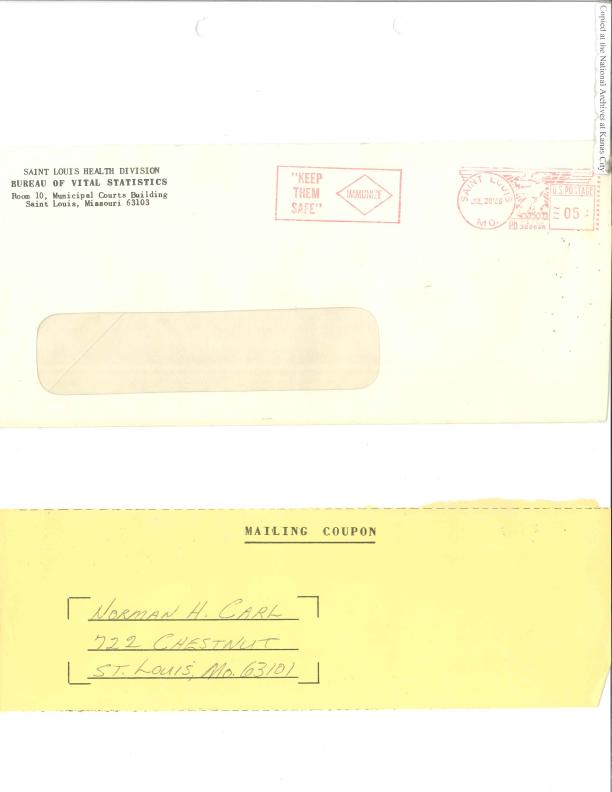 Copied at the National Archives at Kansas City
SAINT LOUIS HEALTH DIVISION
BUREAU OF VITAL STATISTICS
Room 10, Municipal Courts Building
Saint Louis, Missouri 63103
"KEEP
THEM
SAFE"
IMMUNIZE
SAINT LOUIS
JUL 28'66
MO.
U.S. POSTAGE
05
PB
MAILING COUPON
NORMAN H. CARL
722 CHESTNUT
ST. LOUIS, MO. 63101